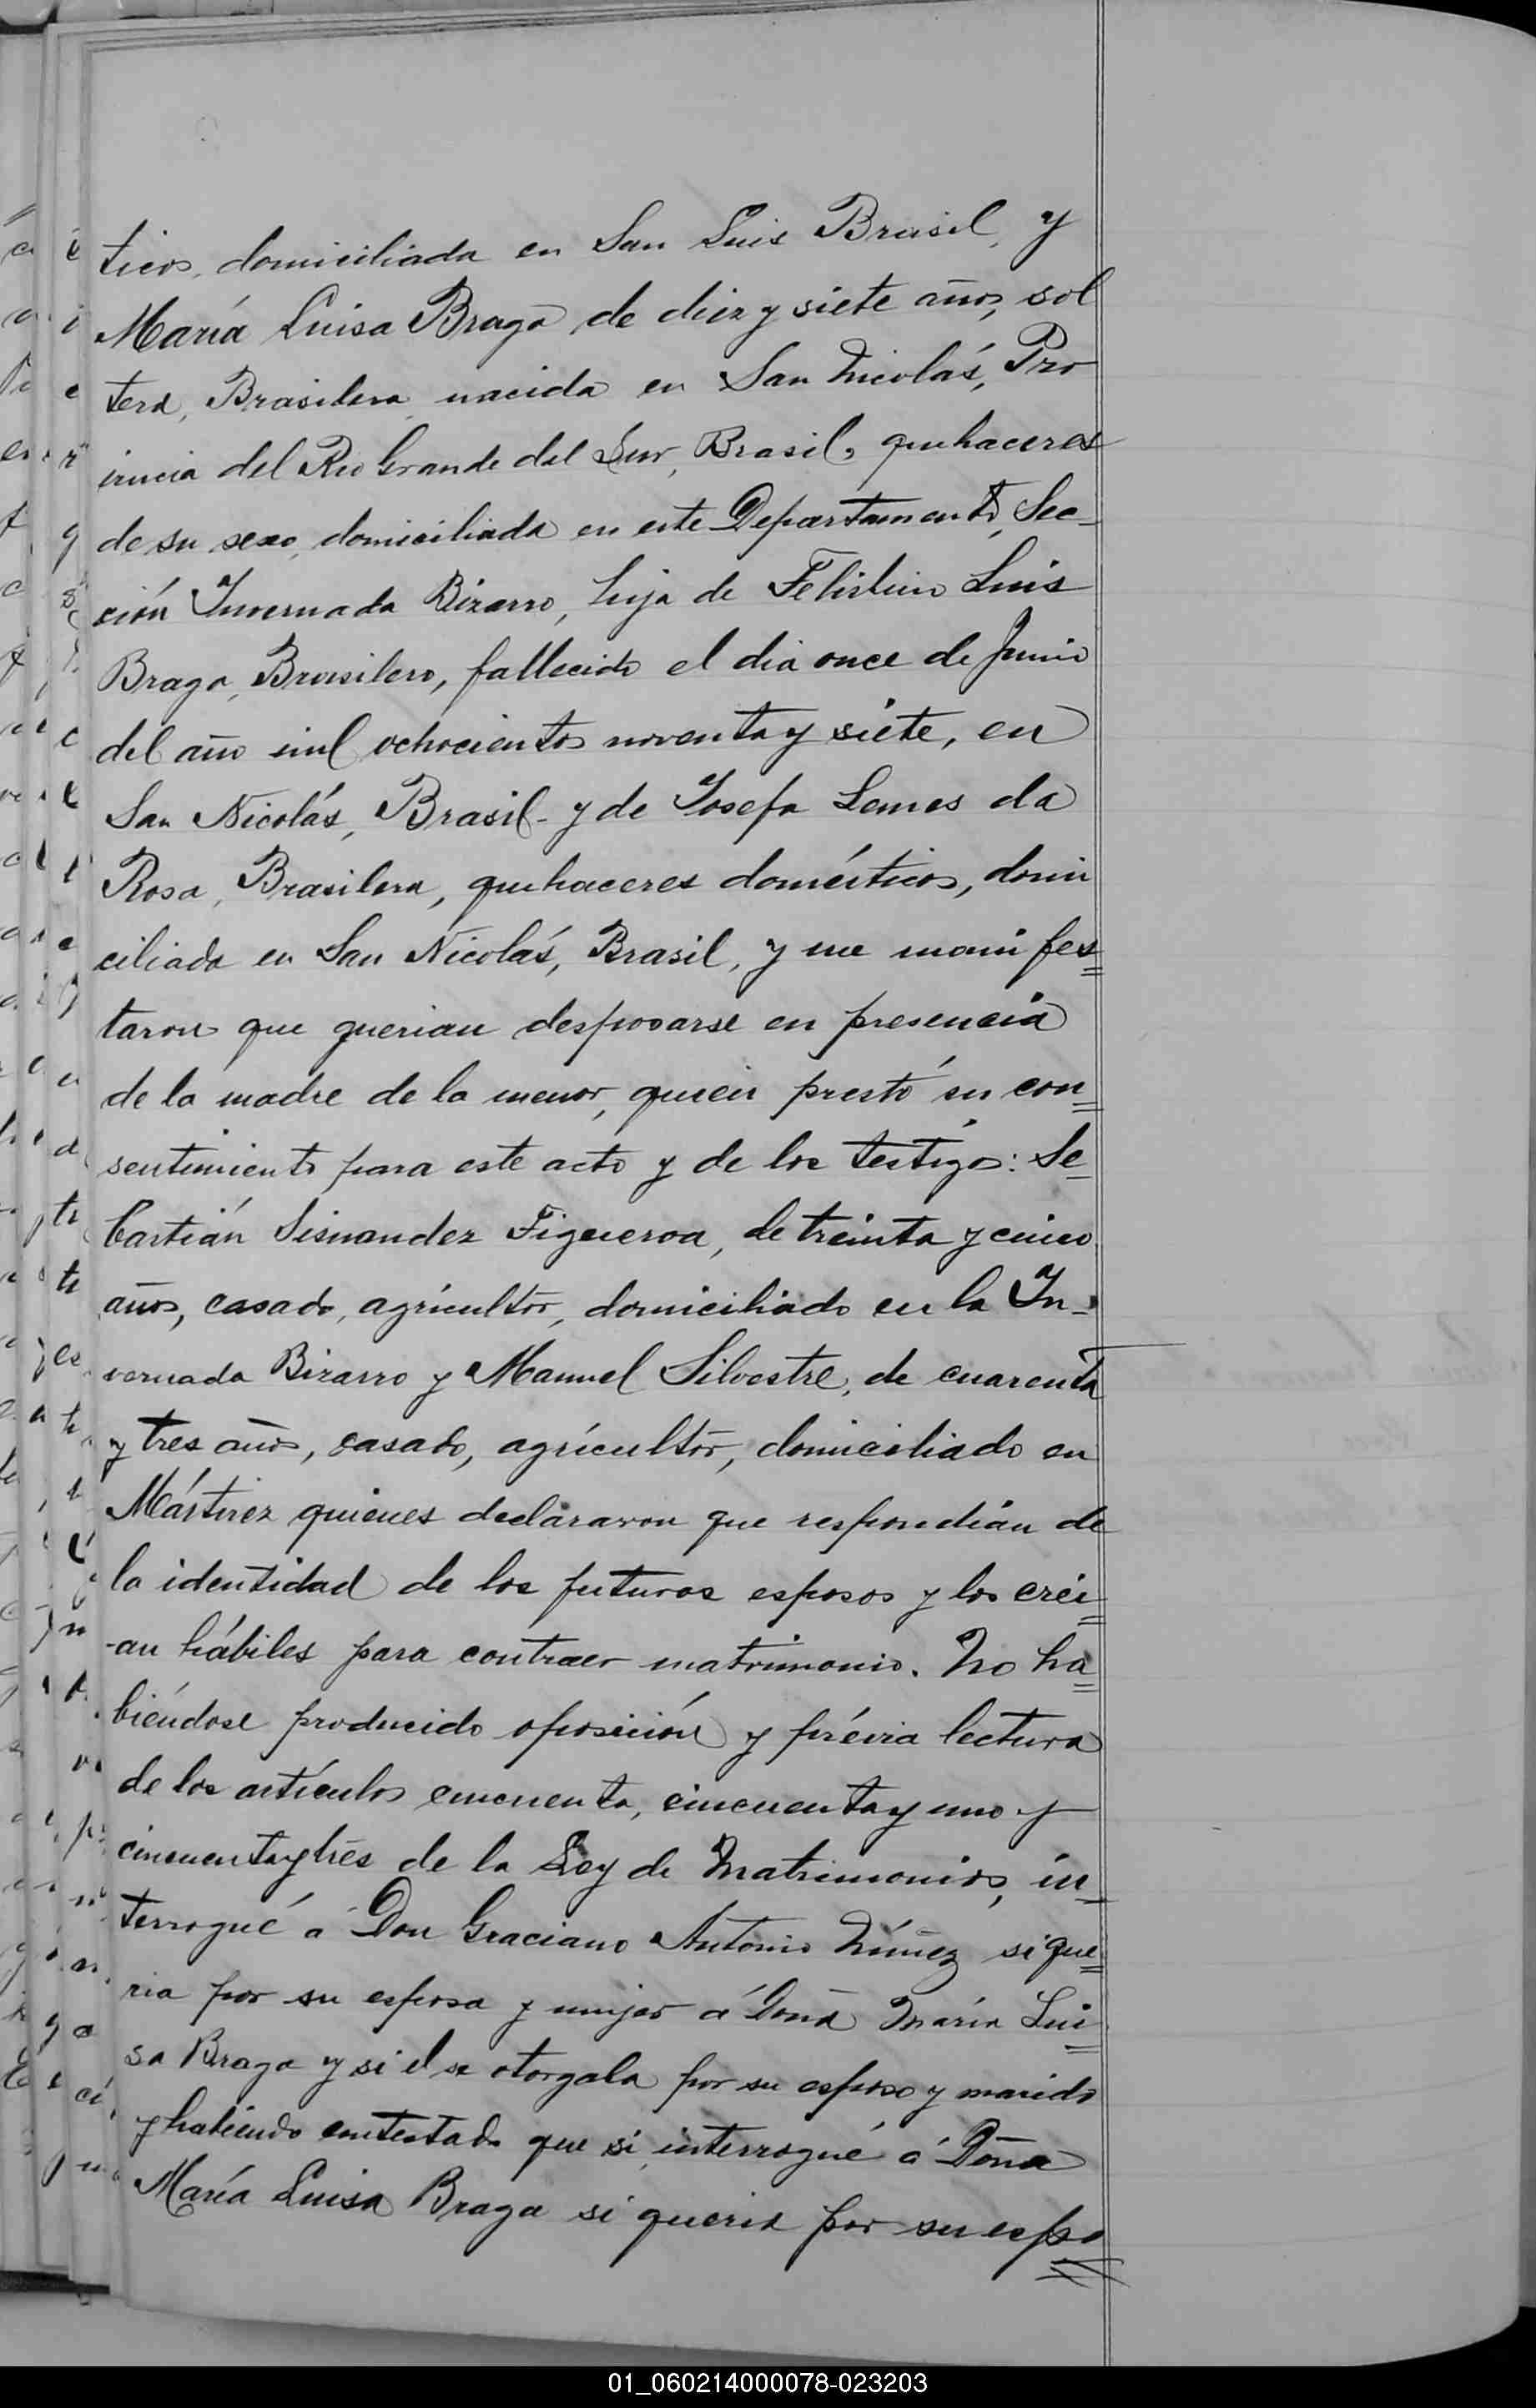 ticos, domiciliada en San Luis Brasil, y
María Luisa Braga, de diez y siete años, sol
tera, Brasilera, nacida en San Nicolás, Pro
vincia del Rio Grande del Sur, Brasil, quehaceres
de su sexo, domiciliada en este Departamento, Sec-
ción Invernada Bizarro, hija de Felisbino Luis
Braga, Brasilero, fallecido el dia once de Junio
del año mil ochocientos noventa y siete, en
San Nicolás, Brasil- y de Josefa Lemes da
Rosa, Brasilera, quehaceres domésticos, domi
ciliada en San Nicolás, Brasil, y me manifes=
taron que querian desposarse en presencia
de la madre de la menor, quien prestó su con=
sentimiento para este acto y de los testigos: Se=
bastián Sisnandez Figueroa, de treinta y cinco
años, casado, agricultor, domiciliado en la In-
vernada Bizarro y Manuel Silvestre, de cuarenta
y tres años, casado, agricultor, domiciliado en
Mártirez quienes declararon que respondián de
la identidad de los futuros esposos y los crei=
-an hábiles para contraer matrimonio. No ha=
biéndose producido oposición y prévia lectura
de los artículos cincuenta, cincuenta y uno y
cincuenta y tres de la Ley de Matrimonios, in=
terrogué á Don Graciano Antonio Núñez si que=
ria por su esposa y mujer á Doña María Lui=
sa Braga y si el se otorgaba por su esposo y marido
y habiendo contestado que si, interrogué á Doña
María Luisa Braga si queria por su espo=
01_060214000078-023203